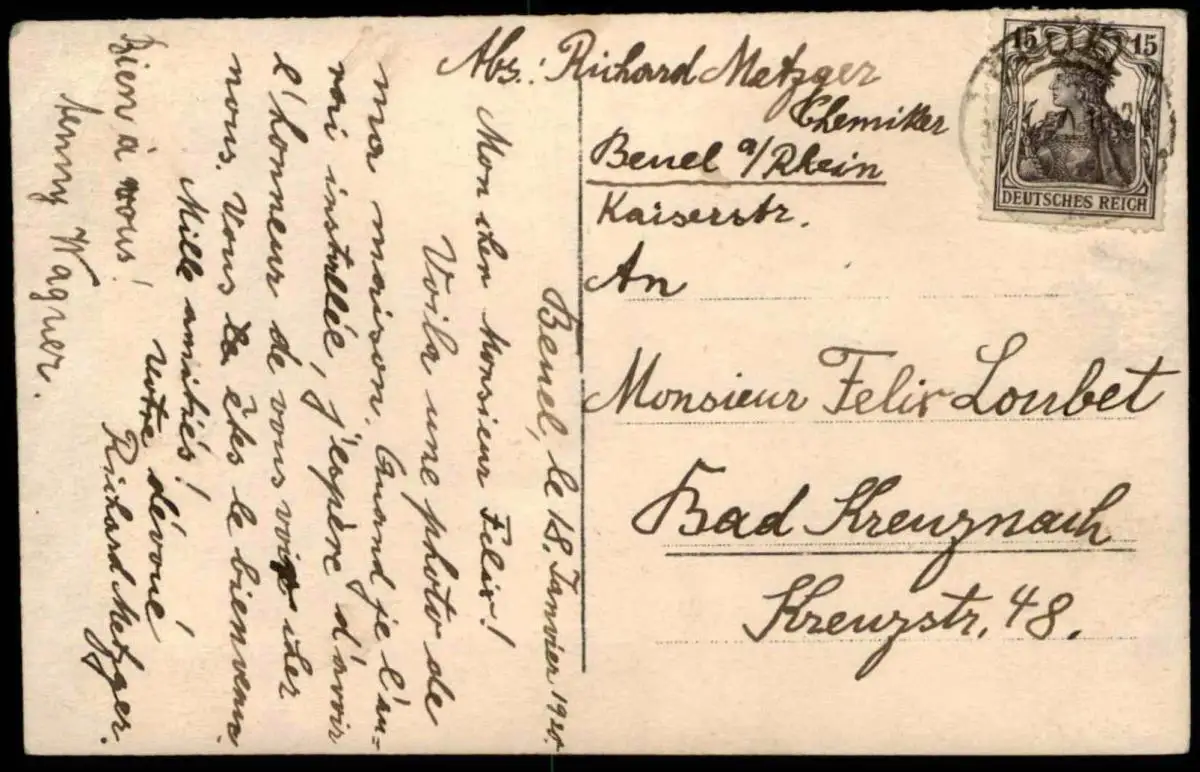 Abs.: Richard Metzger
Chemiker
Beuel a/Rhein
Kaiserstr.
15 15
DEUTSCHES REICH
An
Monsieur Felix Loubet
Bad Kreuznach
Kreuzstr. 48.
Beuel, le 18. Janvier 1920.
Mon cher Monsieur Felix!
Voila une photo de
ma maison. Quand je l'au-
rai installée, j'espère d'avoir
l'honneur de vous voir chez
nous. Vous êtes le bienvenu.
Mille amitiés!
Votre dévoué
Richard Metzger.
Bien à vous!
Jenny Wagner.